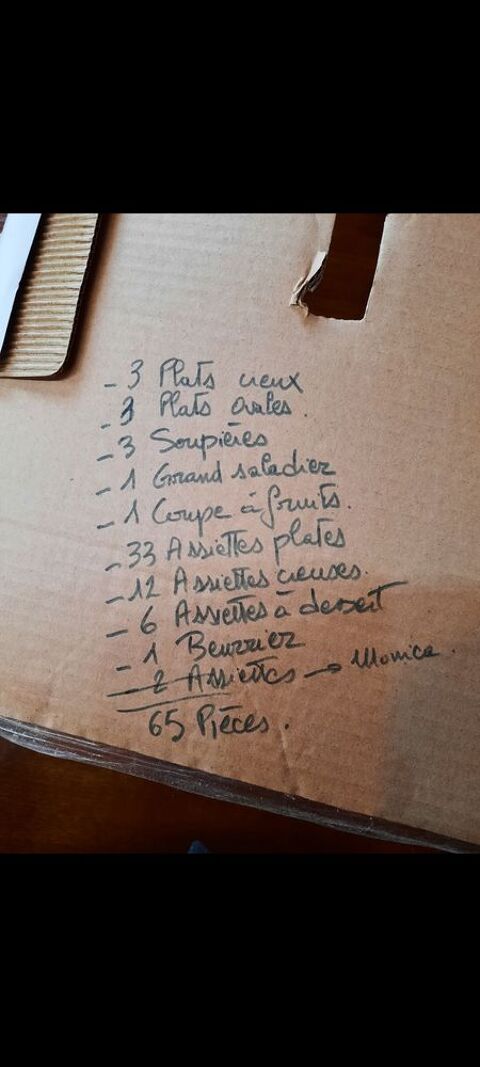 - 3 Plats creux
- 3 Plats ovales.
- 3 Soupières
- 1 Grand saladier
- 1 Coupe à fruits.
- 33 Assiettes plates
- 12 Assiettes creuses.
- 6 Assiettes à dessert
- 1 Beurrier
- 2 Assiettes → Monica.
65 Pièces.